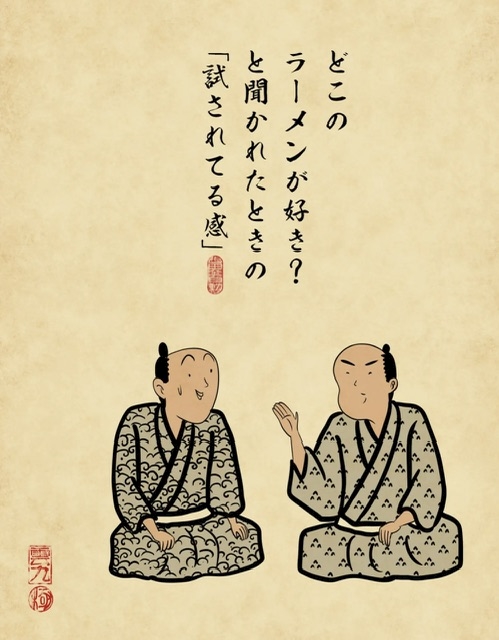 どこの
ラーメンが好き?
と聞かれたときの
「試されてる感」